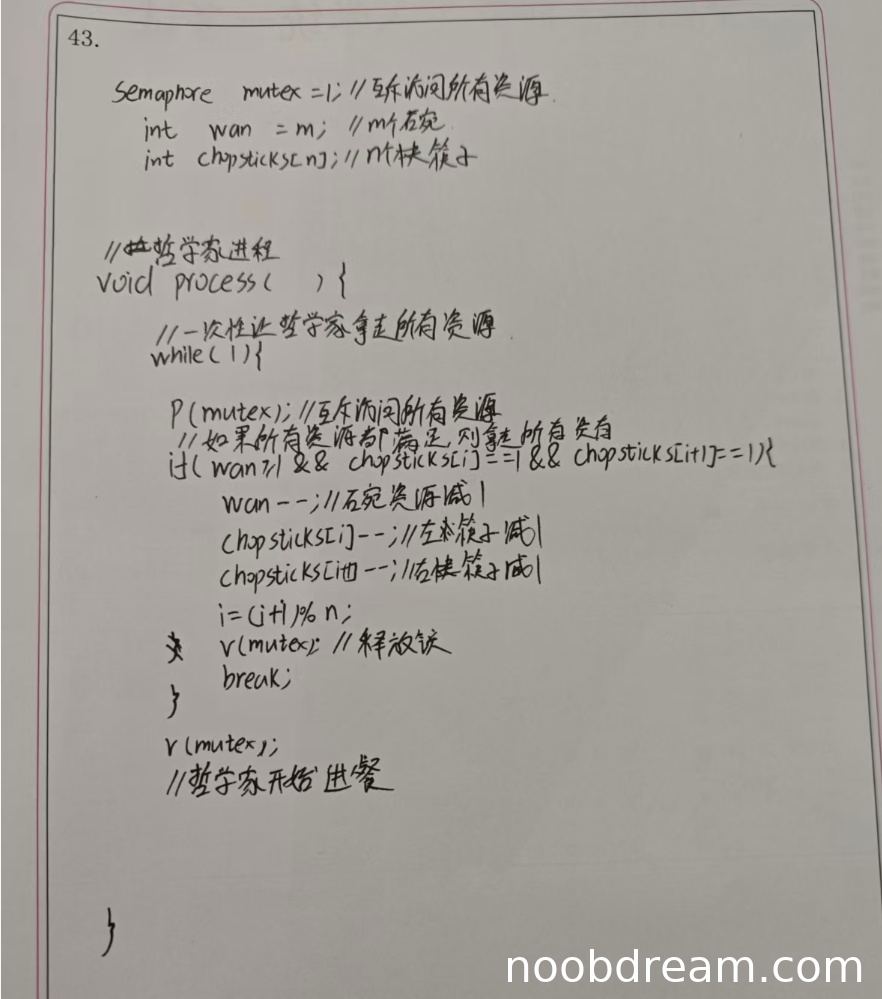 43.
Semaphore mutex =1; //互斥访问所有资源.
int wan = m; //m个石宛.
int chopsticks[n]; //n个块筷子
//哲学家进程
void process( ) {
//一次性让哲学家拿走所有资源.
while(1){
P(mutex); //互斥访问所有资源
//如果所有资源都满足,则拿走所有资有
if( wan≥1 && chopsticks[i]==1 && chopsticks[i+1]==1){
wan--; //石宛资源减1
chopsticks[i]--; //左筷子减1
chopsticks[i+1]--; //右筷子减1
i=(i+1)% n;
V(mutex); //释放锁
break;
}
V(mutex);
//哲学家开始进餐
}
noobdream.com